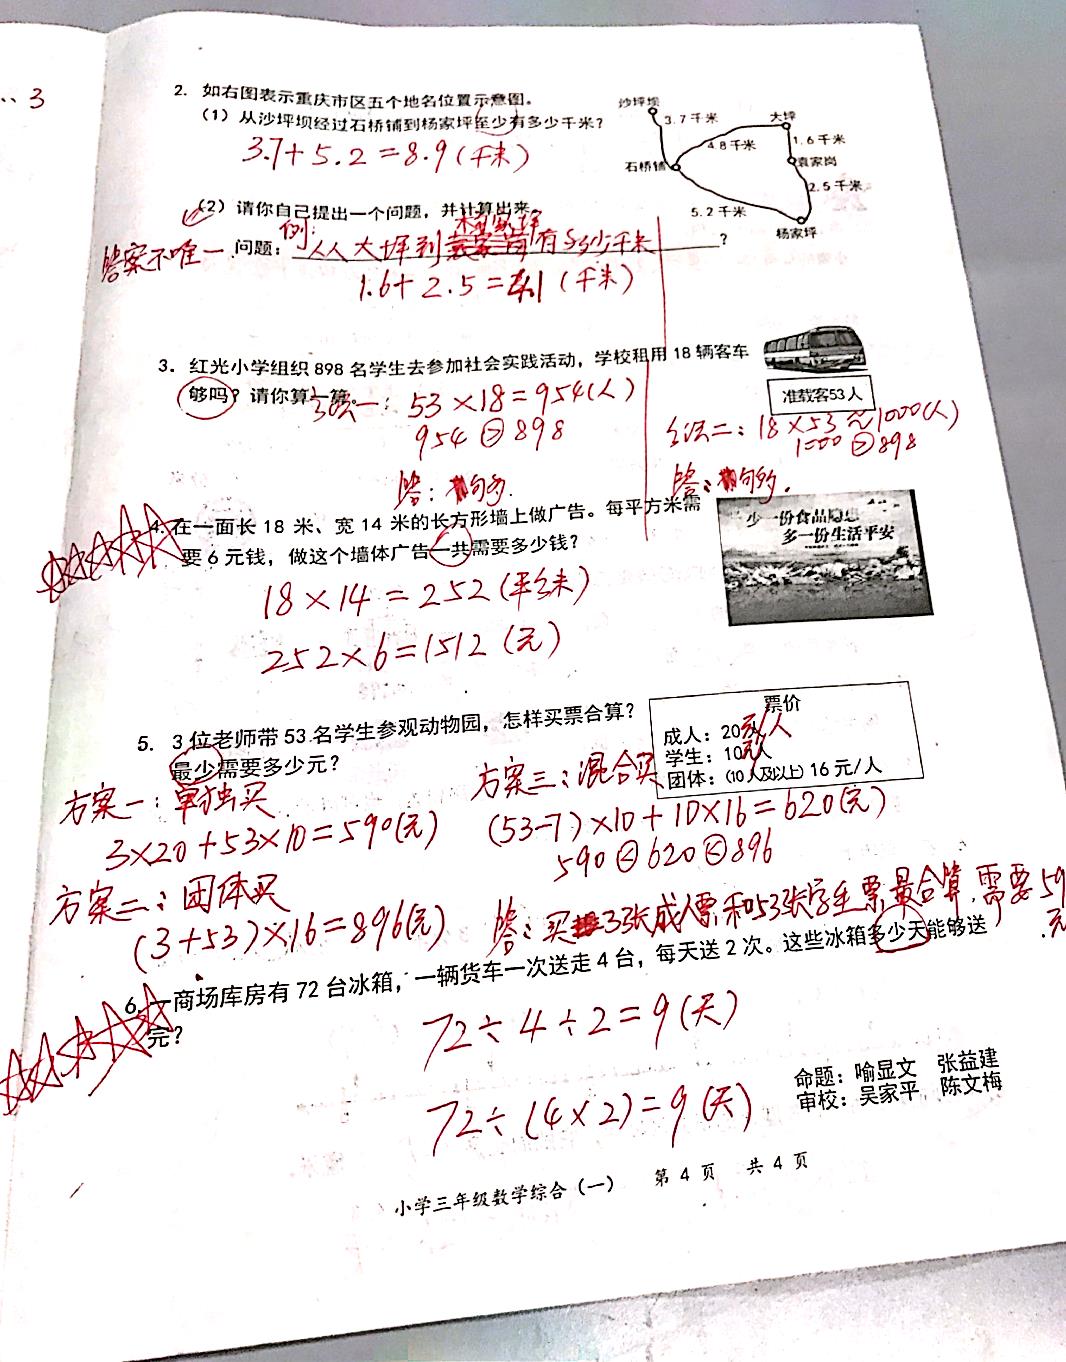 ·· 3
2. 如右图表示重庆市区五个地名位置示意图。
(1) 从沙坪坝经过石桥铺到杨家坪至少有多少千米?
3.7+5.2=8.9(千米)
沙坪坝
3.7千米
大坪
4.8千米
1.6千米
石桥铺
袁家岗
2.5千米
5.2千米
杨家坪
(2) 请你自己提出一个问题,并计算出来。
答案不唯一
例:
问题: 从大坪到杨家坪有多少千米?
1.6+2.5=4.1(千米)
3. 红光小学组织898名学生去参加社会实践活动,学校租用18辆客车
够吗?请你算一算。
准载客53人
方法一: 53×18=954(人)
954>898
答:够.
方法二: 18×53≈1000(人)
1000>898
答:够.
4. 在一面长18米、宽14米的长方形墙上做广告。每平方米需
要6元钱,做这个墙体广告一共需要多少钱?
少一份食品隐患
多一份生活平安
18×14=252(平方米)
252×6=1512(元)
5. 3位老师带53名学生参观动物园,怎样买票合算?
最少需要多少元?
票价
成人:20元/人
学生:10元/人
团体:(10人及以上)16元/人
方案一:单独买
3×20+53×10=590(元)
方案二:团体买
(3+53)×16=896(元)
方案三:混合买
(53-7)×10+10×16=620(元)
590<620<896
答:买3张成人票和53张学生票最合算,需要59
元.
6. 一商场库房有72台冰箱,一辆货车一次送走4台,每天送2次。这些冰箱多少天能够送
完?
72÷4÷2=9(天)
72÷(4×2)=9(天)
命题:喻显文 张益建
审校:吴家平 陈文梅
小学三年级数学综合(一) 第4页 共4页